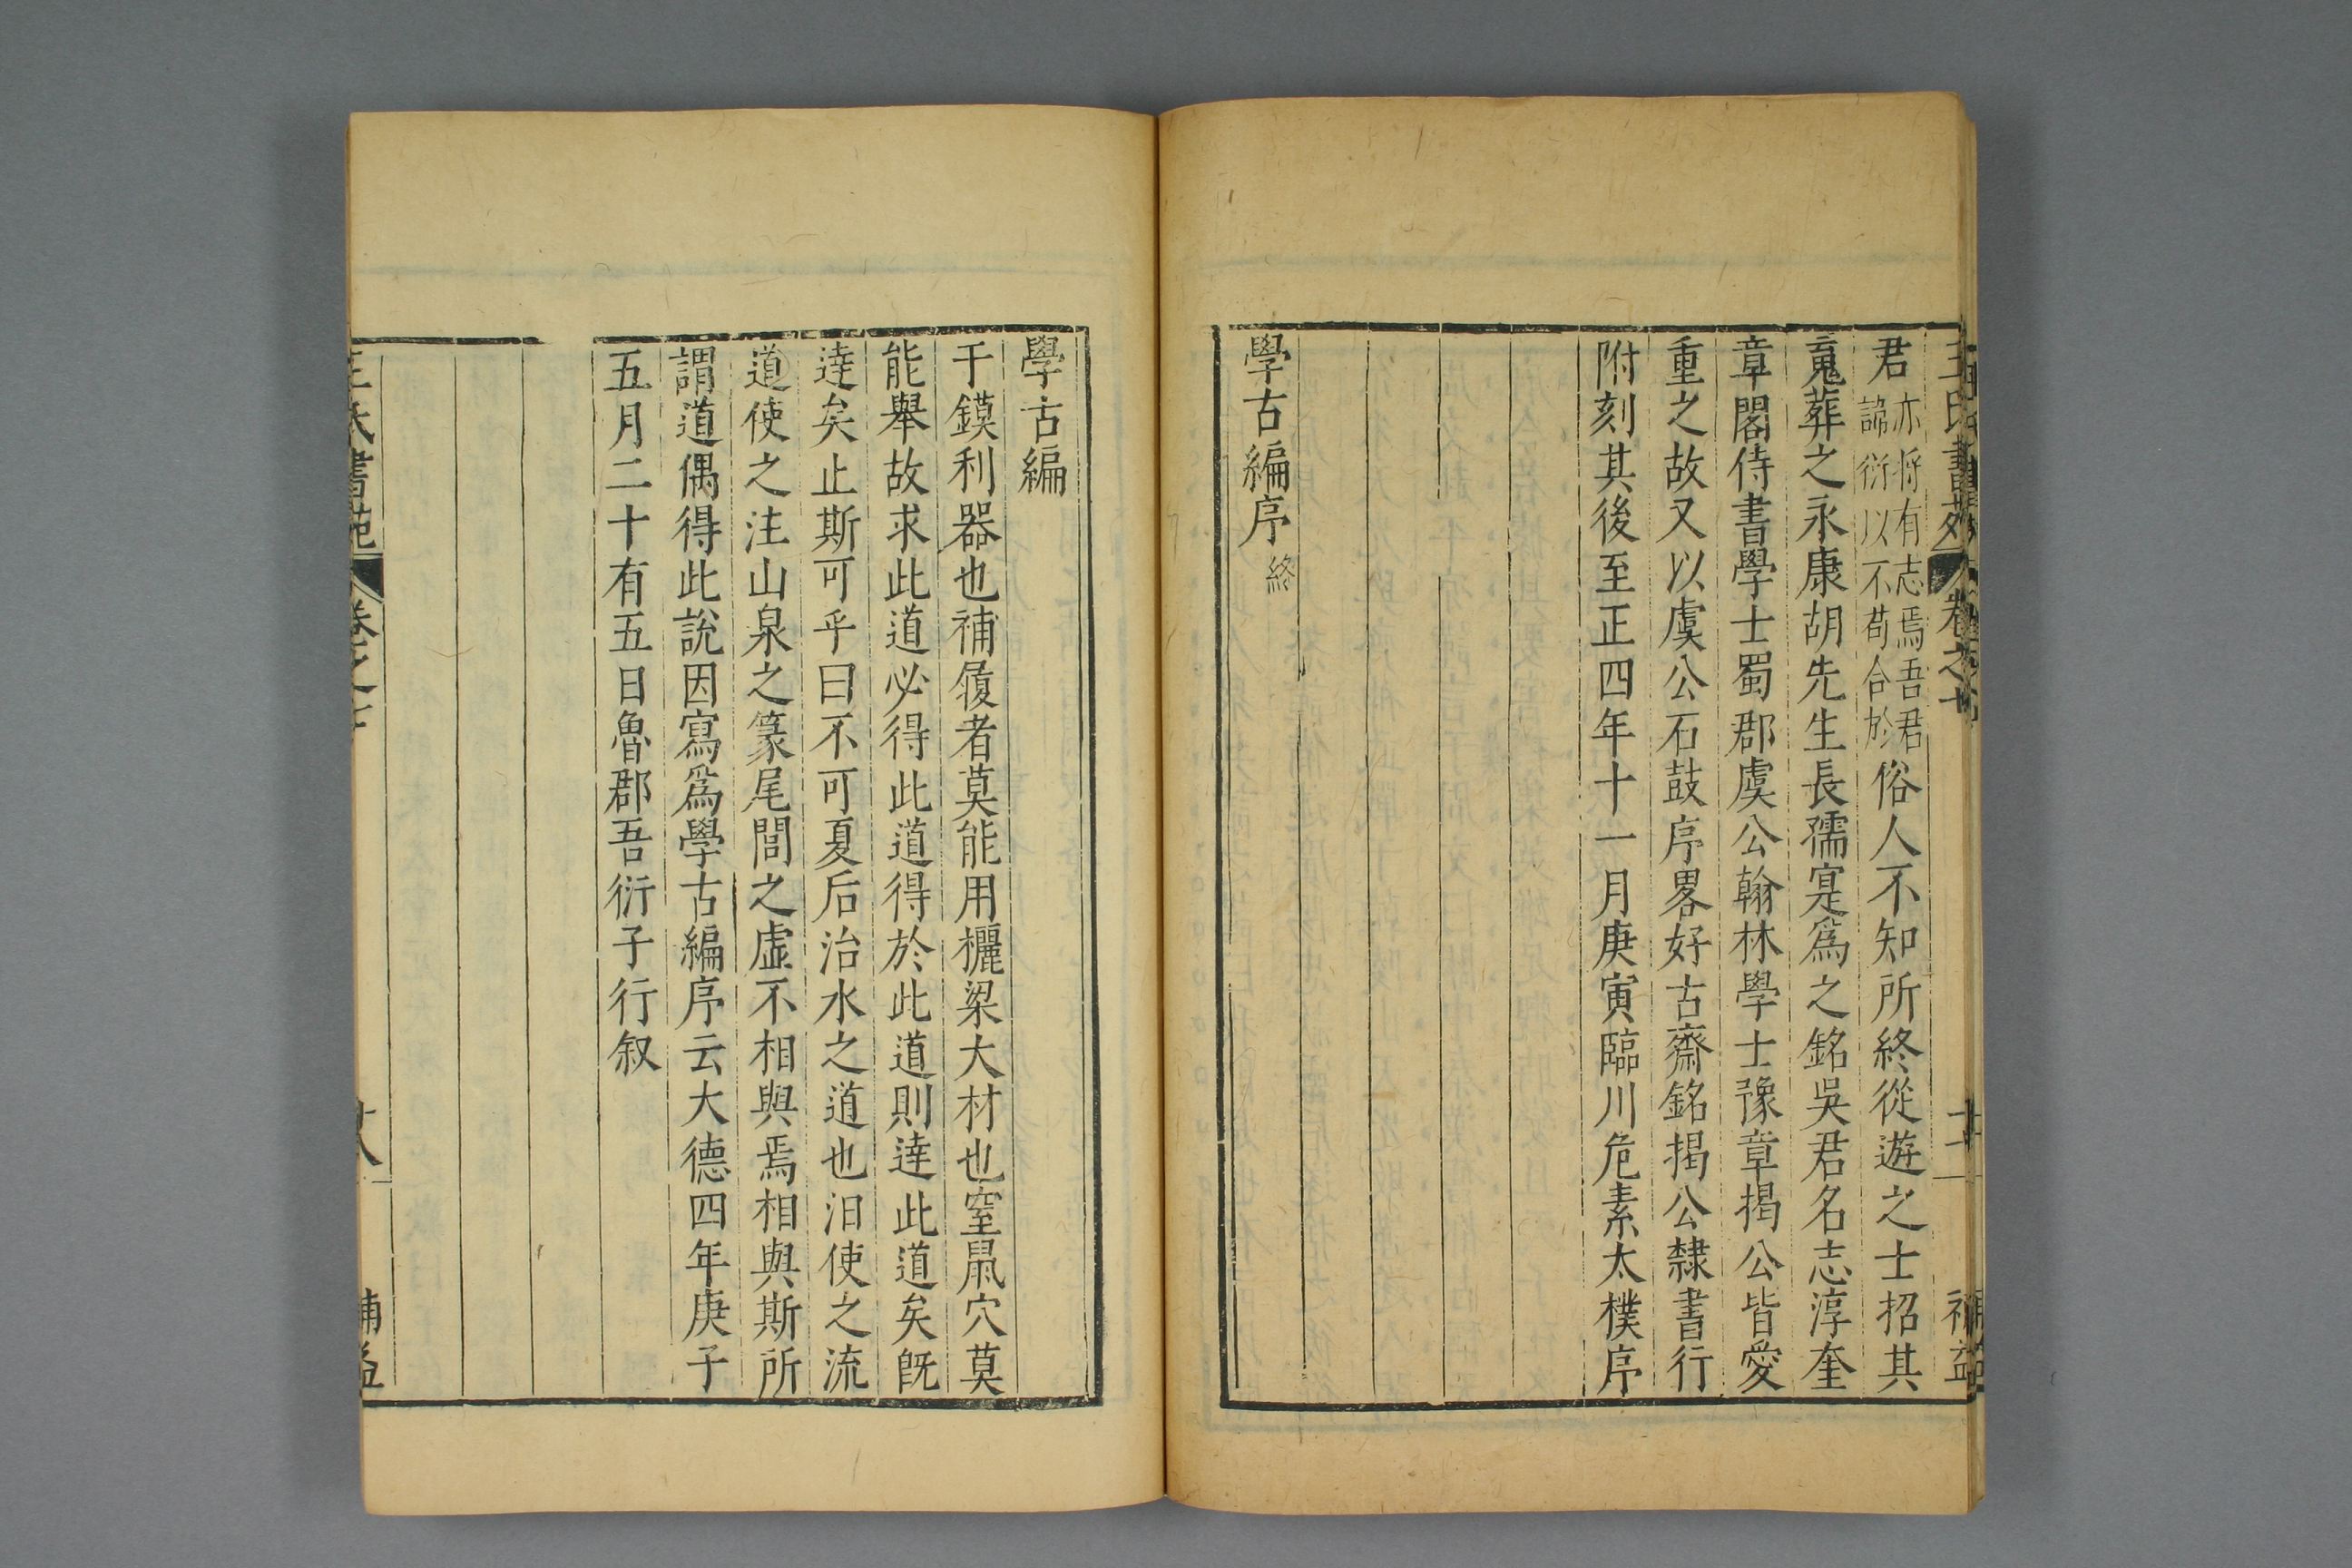 君亦将有志焉吾君諦衍以不苟合於俗人不知所終從遊之士招其
䰟葬之永康胡先生長孺寔爲之銘吳君名志淳奎
章閣侍書學士蜀郡虞公翰林學士豫章揭公皆愛
重之故又以虞公石鼓序畧好古齋銘揭公隸書行
附刻其後至正四年十一月庚寅臨川危素太樸序
學古編序終
學古編
干鏌利器也補履者莫能用欐梁大材也窒鼠穴莫
能舉故求此道必得此道得於此道則達此道矣旣
達矣止斯可乎曰不可夏后治水之道也汨使之流
道使之注山泉之篆尾閭之虛不相與焉相與斯所
謂道偶得此說因寫爲學古編序云大德四年庚子
五月二十有五日魯郡吾衍子行叙
王氏書苑 卷之十 廿八 補益